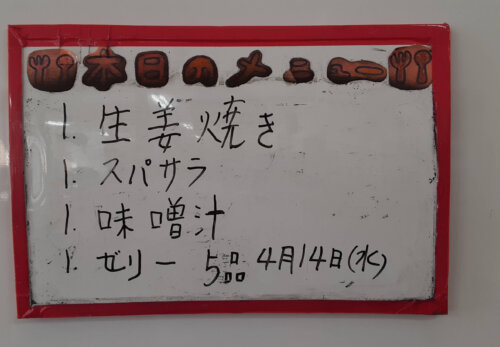 本日のメニュー
1. 生姜焼き
1. スパサラ
1. 味噌汁
1. ゼリー 5品 4月14日(水)